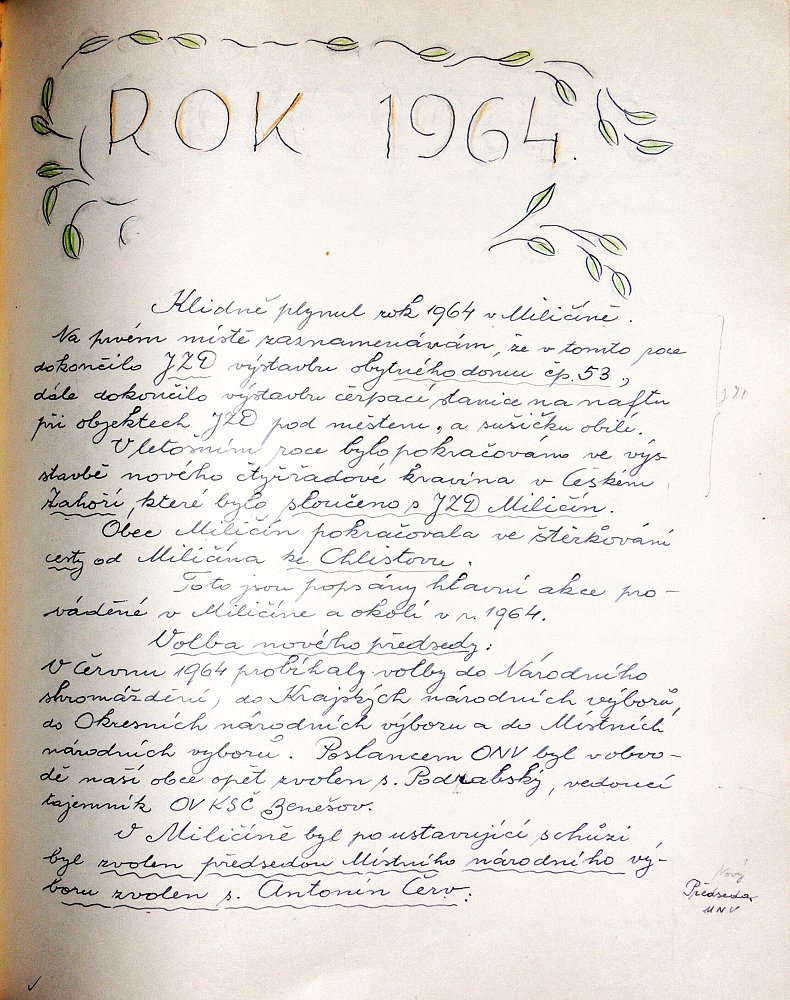 ROK 1964.
Klidně plynul rok 1964 v Miličíně.
Na prvém místě zaznamenávám, že v tomto roce
dokončilo JZD výstavbu obytného domu čp. 53,
dále dokončilo výstavbu čerpací stanice na naftu
při objektech JZD pod městem, a sušičku obilí.
V letošním roce bylo pokračováno ve výs-
stavbě nového čtyřřadové kravína v Českém
Záhoří, které bylo sloučeno s JZD Miličín.
Obec Miličín pokračovala ve štěrkování
cesty od Miličína ke Chlistovu.
Toto jsou popsány hlavní akce pro-
váděné v Miličíne a okolí v r. 1964.
Volba nového předsedy:
V červnu 1964 probíhaly volby do Národního
shromáždění, do Krajských národních výborů,
do Okresních národních výboru a do Místních
národních vyborů. Poslancem ONV byl v obvo-
dě naší obce opět zvolen s. Podrabský, vedoucí
tajemník OV KSČ Benešov.
V Miličíně byl po ustavující schůzi,
byl zvolen předsedou Místního národního vý-
boru zvolen s. Antonín Červ.
Nový
Předseda
MNV